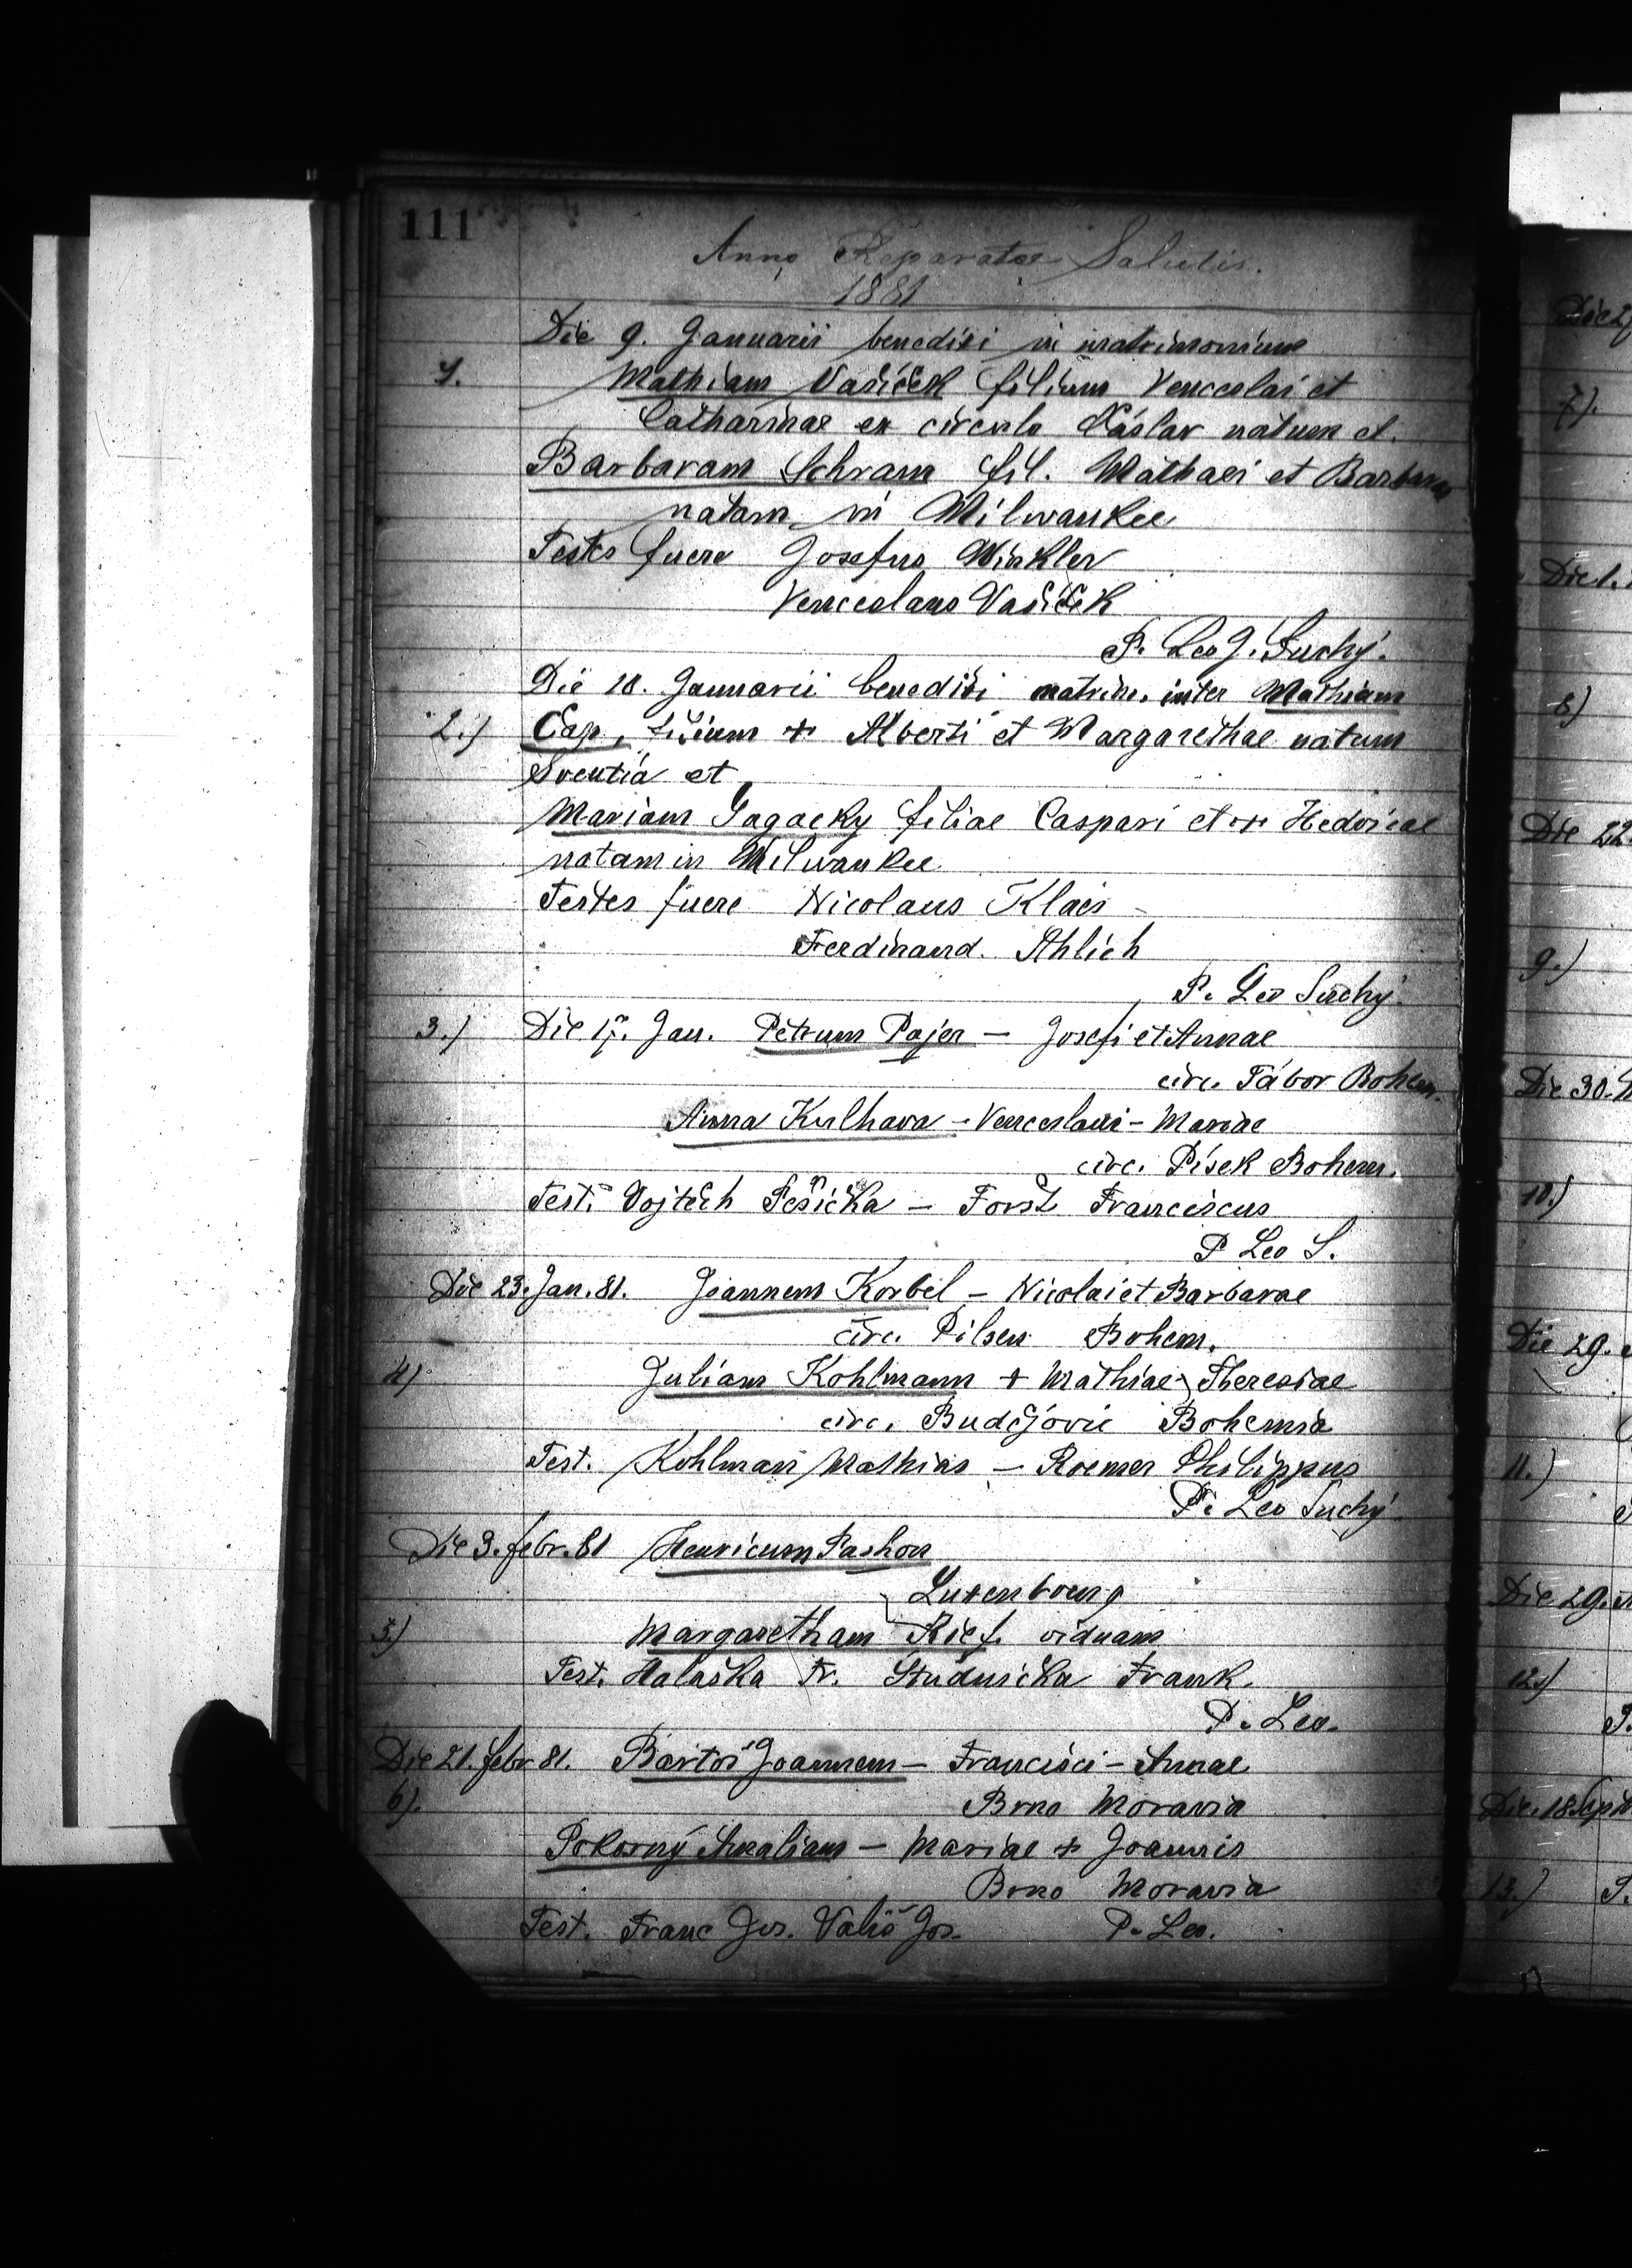 111
Anno Reparatae Salutis.
1881
Die 9. Januarii benedixi in matrimonium
1. Mathiam Vašíček filium Venceslai et
Catharinae ex circulo Čáslav natum et.
Barbaram Schram fil. Mathaei et Barbarae
natam in Milwaukee
Testes fuere Josefus Winkler
Venceslaus Vašíček
P. Leo J. Suchý.
Die 10. Januarii benedixi matrim. inter Mathiam
2.) Čap, filium + Alberti et Margarethae natum
et
Mariam Gagacky filiae Caspari et + Hedvicae
natam in Milwaukee
Testes fuere Nicolaus Klaes
Ferdinand. Ahlich
P. Leo Suchý.
3.) Die 17. Jan. Petrum Pajer — Josefi et Annae
circ. Tábor Bohem.
Anna Kulhava — Venceslaui — Mariae
circ. Písek Bohem.
Test. Vojtěch Pešička — Forst Franciscus
P Leo S.
Die 23. Jan. 81. Joannem Korbel — Nicolai et Barbarae
circ. Pilsen Bohem.
4) Juliam Kohlmann + Mathiae Theresiae
circ. Budějovic Bohemia
Test. Kohlman Mathias — Roemer Philippus
P. Leo Suchý.
Die 3. febr. 81 Henricum Pashon
Luxenbourg
5.) Margaretham Rief. viduam
Test. Halaška Fr. Studnička Frank.
P. Leo.
Die 21. febr 81. Bartoš Joannem — Francisci — Annae
6). Brno Moravia
Pokorný Amaliam — Mariae + Joannis
Brno Moravia
Test. Franc Jos. Vališ Jos. P. Leo.
7).
Die 1.
8)
Die 22.
9.)
Die 30.
10.)
Die 29.
11.)
Die 29.
12.)
Die 18. Sept
13.)